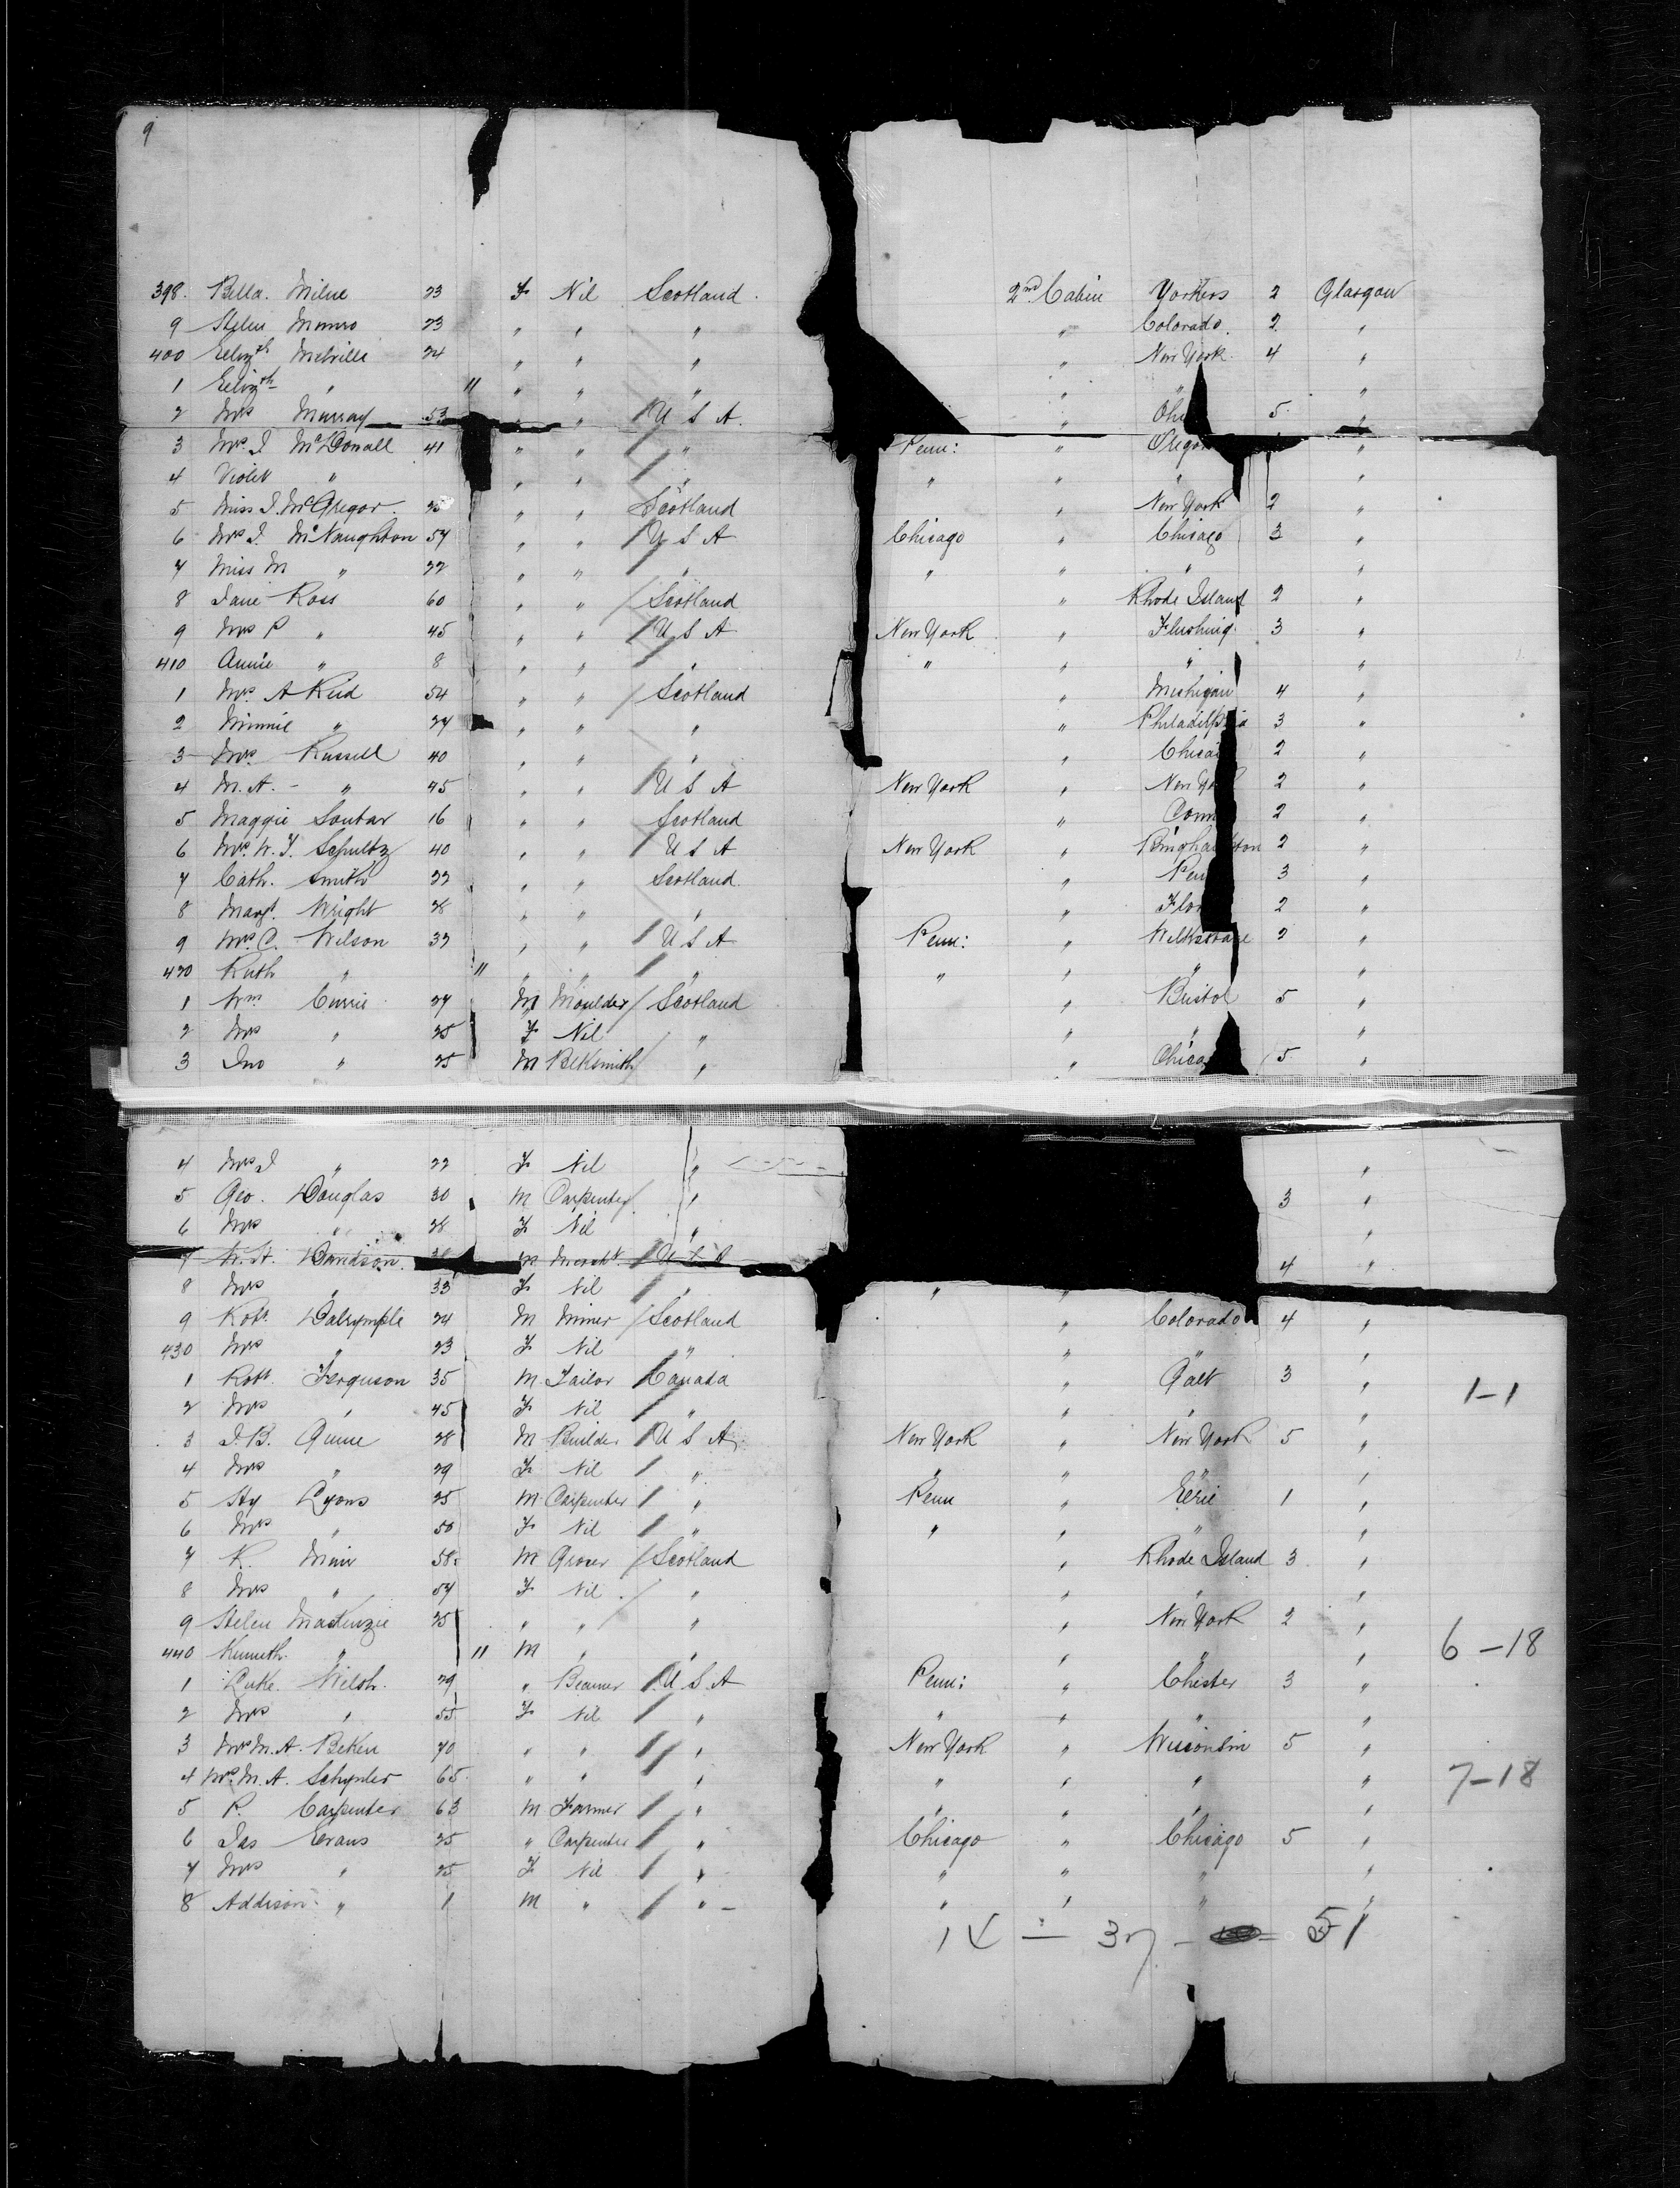 9
398. Bella. Milne 23 F Nil Scotland. 2nd Cabin Yonkers 2 Glasgow
9 Helen Munro 23 " " " " Colorado. 2 "
400 Elizth Melville 24 " " " " New York 4 "
1 Elizth " 11 " " " " " "
2 Mrs Murray 53 " " U S A. " 5 "
3 Mrs J McDonall 41 " " " Penn: " "
4 Violet " " " " " " " "
5 Miss J. McGregor. 25 " " Scotland " New York 2 "
6 Mrs J. McNaughton 57 " " U S A Chicago " Chicago 3 "
7 Miss M " 22 " " " " " " "
8 Jane Ross 60 " " Scotland " Rhode Island 2 "
9 Mrs P " 45 " " U S A New York " Flushing 3 "
410 Annie " 8 " " " " " " "
1 Mrs. A Reid 54 " " Scotland " Michigan 4 "
2 Minnie " 27 " " " " Philadelphia 3 "
3 Mrs. Russell 40 " " " " 2 "
4 M. A. - " 45 " " U S A New York " New Yo 2 "
5 Maggie Soutar 16 " " Scotland " Conn 2 "
6 Mrs. W. F. Schultz 40 " " U S A New York " Binghamton 2 "
7 Cath. Smith 22 " " Scotland. " Pen 3 "
8 Margt. Wright 28 " " " " Flo 2 "
9 Mrs. C. Wilson 33 " " U S A Penn: " 2 "
420 Ruth " 11 " " " " " " "
1 Wm Currie 27 M Moulder Scotland " Bristol 5 "
2 Mrs " 25 F Nil " " " "
3 Jno " 25 M Blksmith " " Chica 5 "
4 Mrs J " 22 F Nil " "
5 Geo. Douglas 30 M Carpenter " 3 "
6 Mrs " 28 F Nil " "
7 W. H. Davidson. M Mercht. U S A 4 "
8 Mrs " 33 F Nil " " "
9 Robt. Dalrymple 24 M Miner Scotland " Colorado 4 "
430 Mrs " 23 F Nil " " " "
1 Robt. Ferguson 35 M Tailor Canada " Galt 3 " 1-1
2 Mrs " 45 F Nil " " " "
3 J. B. Gunn 28 M Builder U S A. New York " New York 5 "
4 Mrs " 29 F Nil " " " " "
5 Hy Lyons 25 M Carpenter " Penn " Erie 1 "
6 Mrs " 50 F Nil " " " " "
7 R. Muir 58. M Grocer Scotland " Rhode Island 3. "
8 Mrs " 57 F Nil " " " "
9 Helen MacKenzie 25 " " " " New York 2 "
440 Kenneth. " 11 M " " " " " 6 - 18
1 Luke. Welsh. 29 " Beamer U S A Penn: " Chester 3 "
2 Mrs " 55 F Nil " " " " "
3 Mrs M. A. Beken 70 " " " New York " Wisconsin 5 "
4 Mrs. M. A. Schynler 65. " " " " " " " 7-18
5 P. Carpenter 63 M Farmer " " " " "
6 Jas Evans 25 " Carpenter " Chicago " Chicago 5 "
7 Mrs " 25 F Nil " " " " "
8 Addison " 1 M " " - " " " "
14 - 37 - = 51